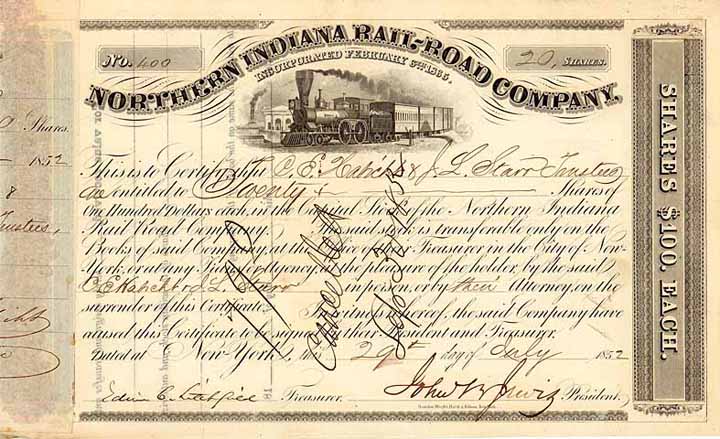 No. 400
20, SHARES.
NORTHERN INDIANA RAIL-ROAD COMPANY.
INCORPORATED FEBRUARY 6TH 1835.
This is to Certify that C. E. Habicht & J. L. Starr Trustees
are entitled to Twenty Shares of
One Hundred Dollars each, in the Capital Stock of the Northern Indiana
Rail Road Company. The said stock is transferable only on the
Books of said Company, at the Office of their Treasurer in the City of New-
York, or at any Transfer Agency, at the pleasure of the holder, by the said
C. E. Habicht & J. L. Starr in person, or by their Attorney, on the
surrender of this Certificate.
In witness whereof, the said Company have
caused this Certificate to be signed by their President and Treasurer.
Dated at New York, this 29th day of July 1852
Edwin C. Litchfield Treasurer.
John B. Jervis President.
Cancelled
SHARES $100. EACH.
Shares.
1852
Trustees,